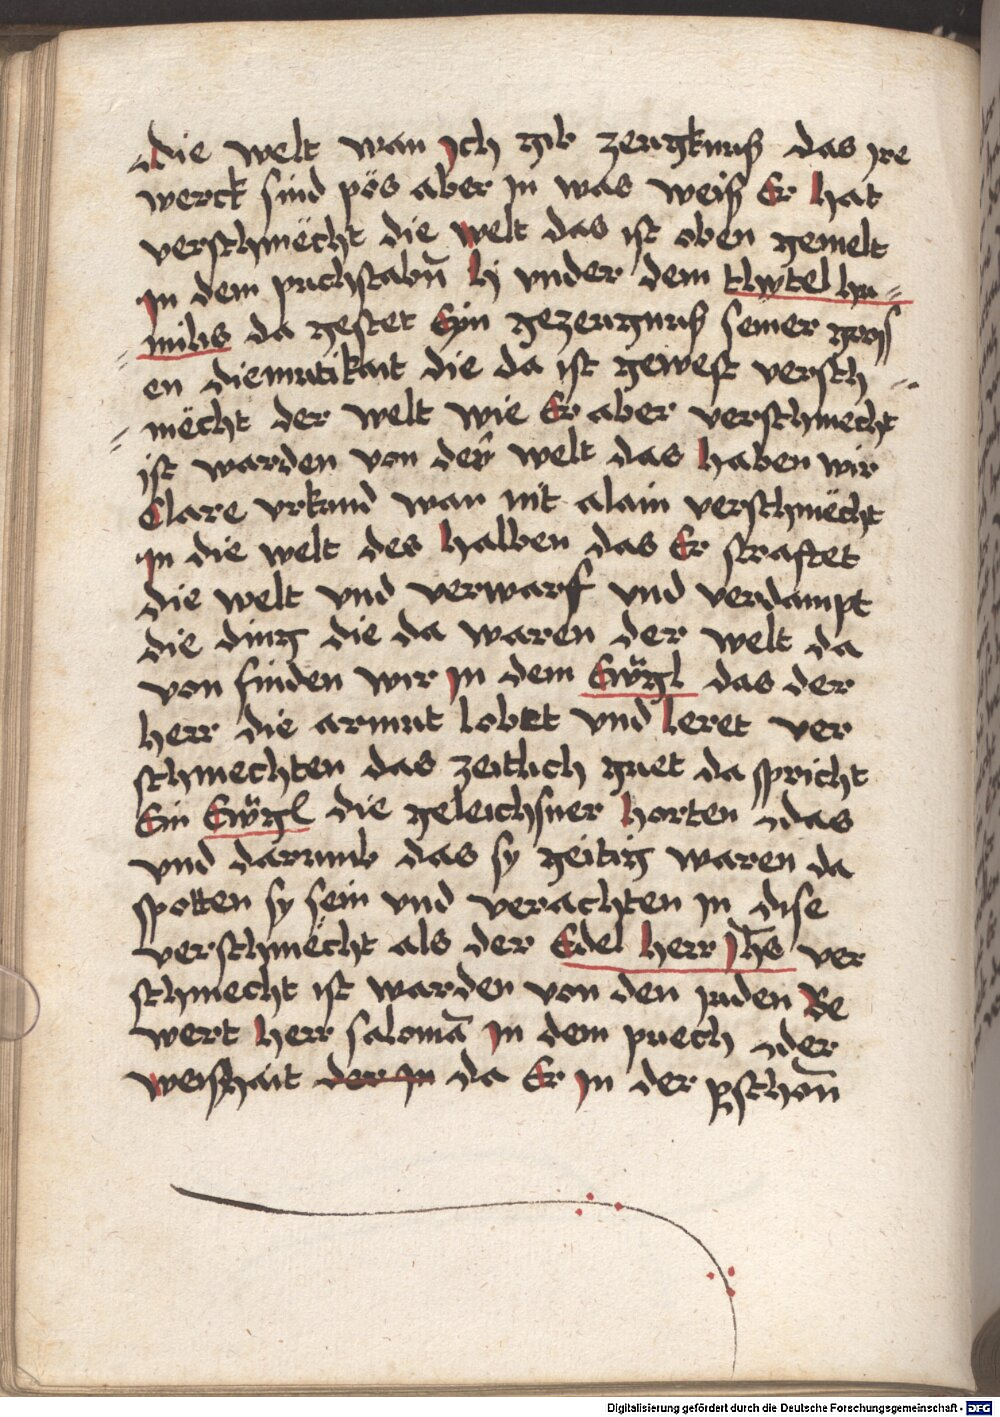 die welt wan ich gib zeugknuß das ire
werck sind pös aber in was weiß Er hat
verschmëcht die welt das ist oben gemelt
in dem puchstabn̄ h vnder dem titel hu=
milis da gestet Ein gezeugnuß seiner gross
en diemutikait die da ist gewest versch
mëcht der welt wie Er aber verschmecht
ist warden von der welt das haben wir
Clare vrkund wan nit alain verschmëcht
in die welt des halben das Er straftet
die welt vnd verwarf vnd verdampt
die ding die da waren der welt da
von finden wir in dem Ewgl das der
herr die armut lobet vnd leret ver
schmechten das zeitlich guet da spricht
Ein Ewgl die geleichsner horten das
vnd darumb das sy geitig waren da
spotten sy sein vnd verachten in dise
verschmëcht als der Edel herr Jhs ver
schmecht ist warden von den juden Be
wert herr salomā in dem puech der
weißhait der in da Er in der pschon̄
Digitalisierung gefördert durch die Deutsche Forschungsgemeinschaft - DFG